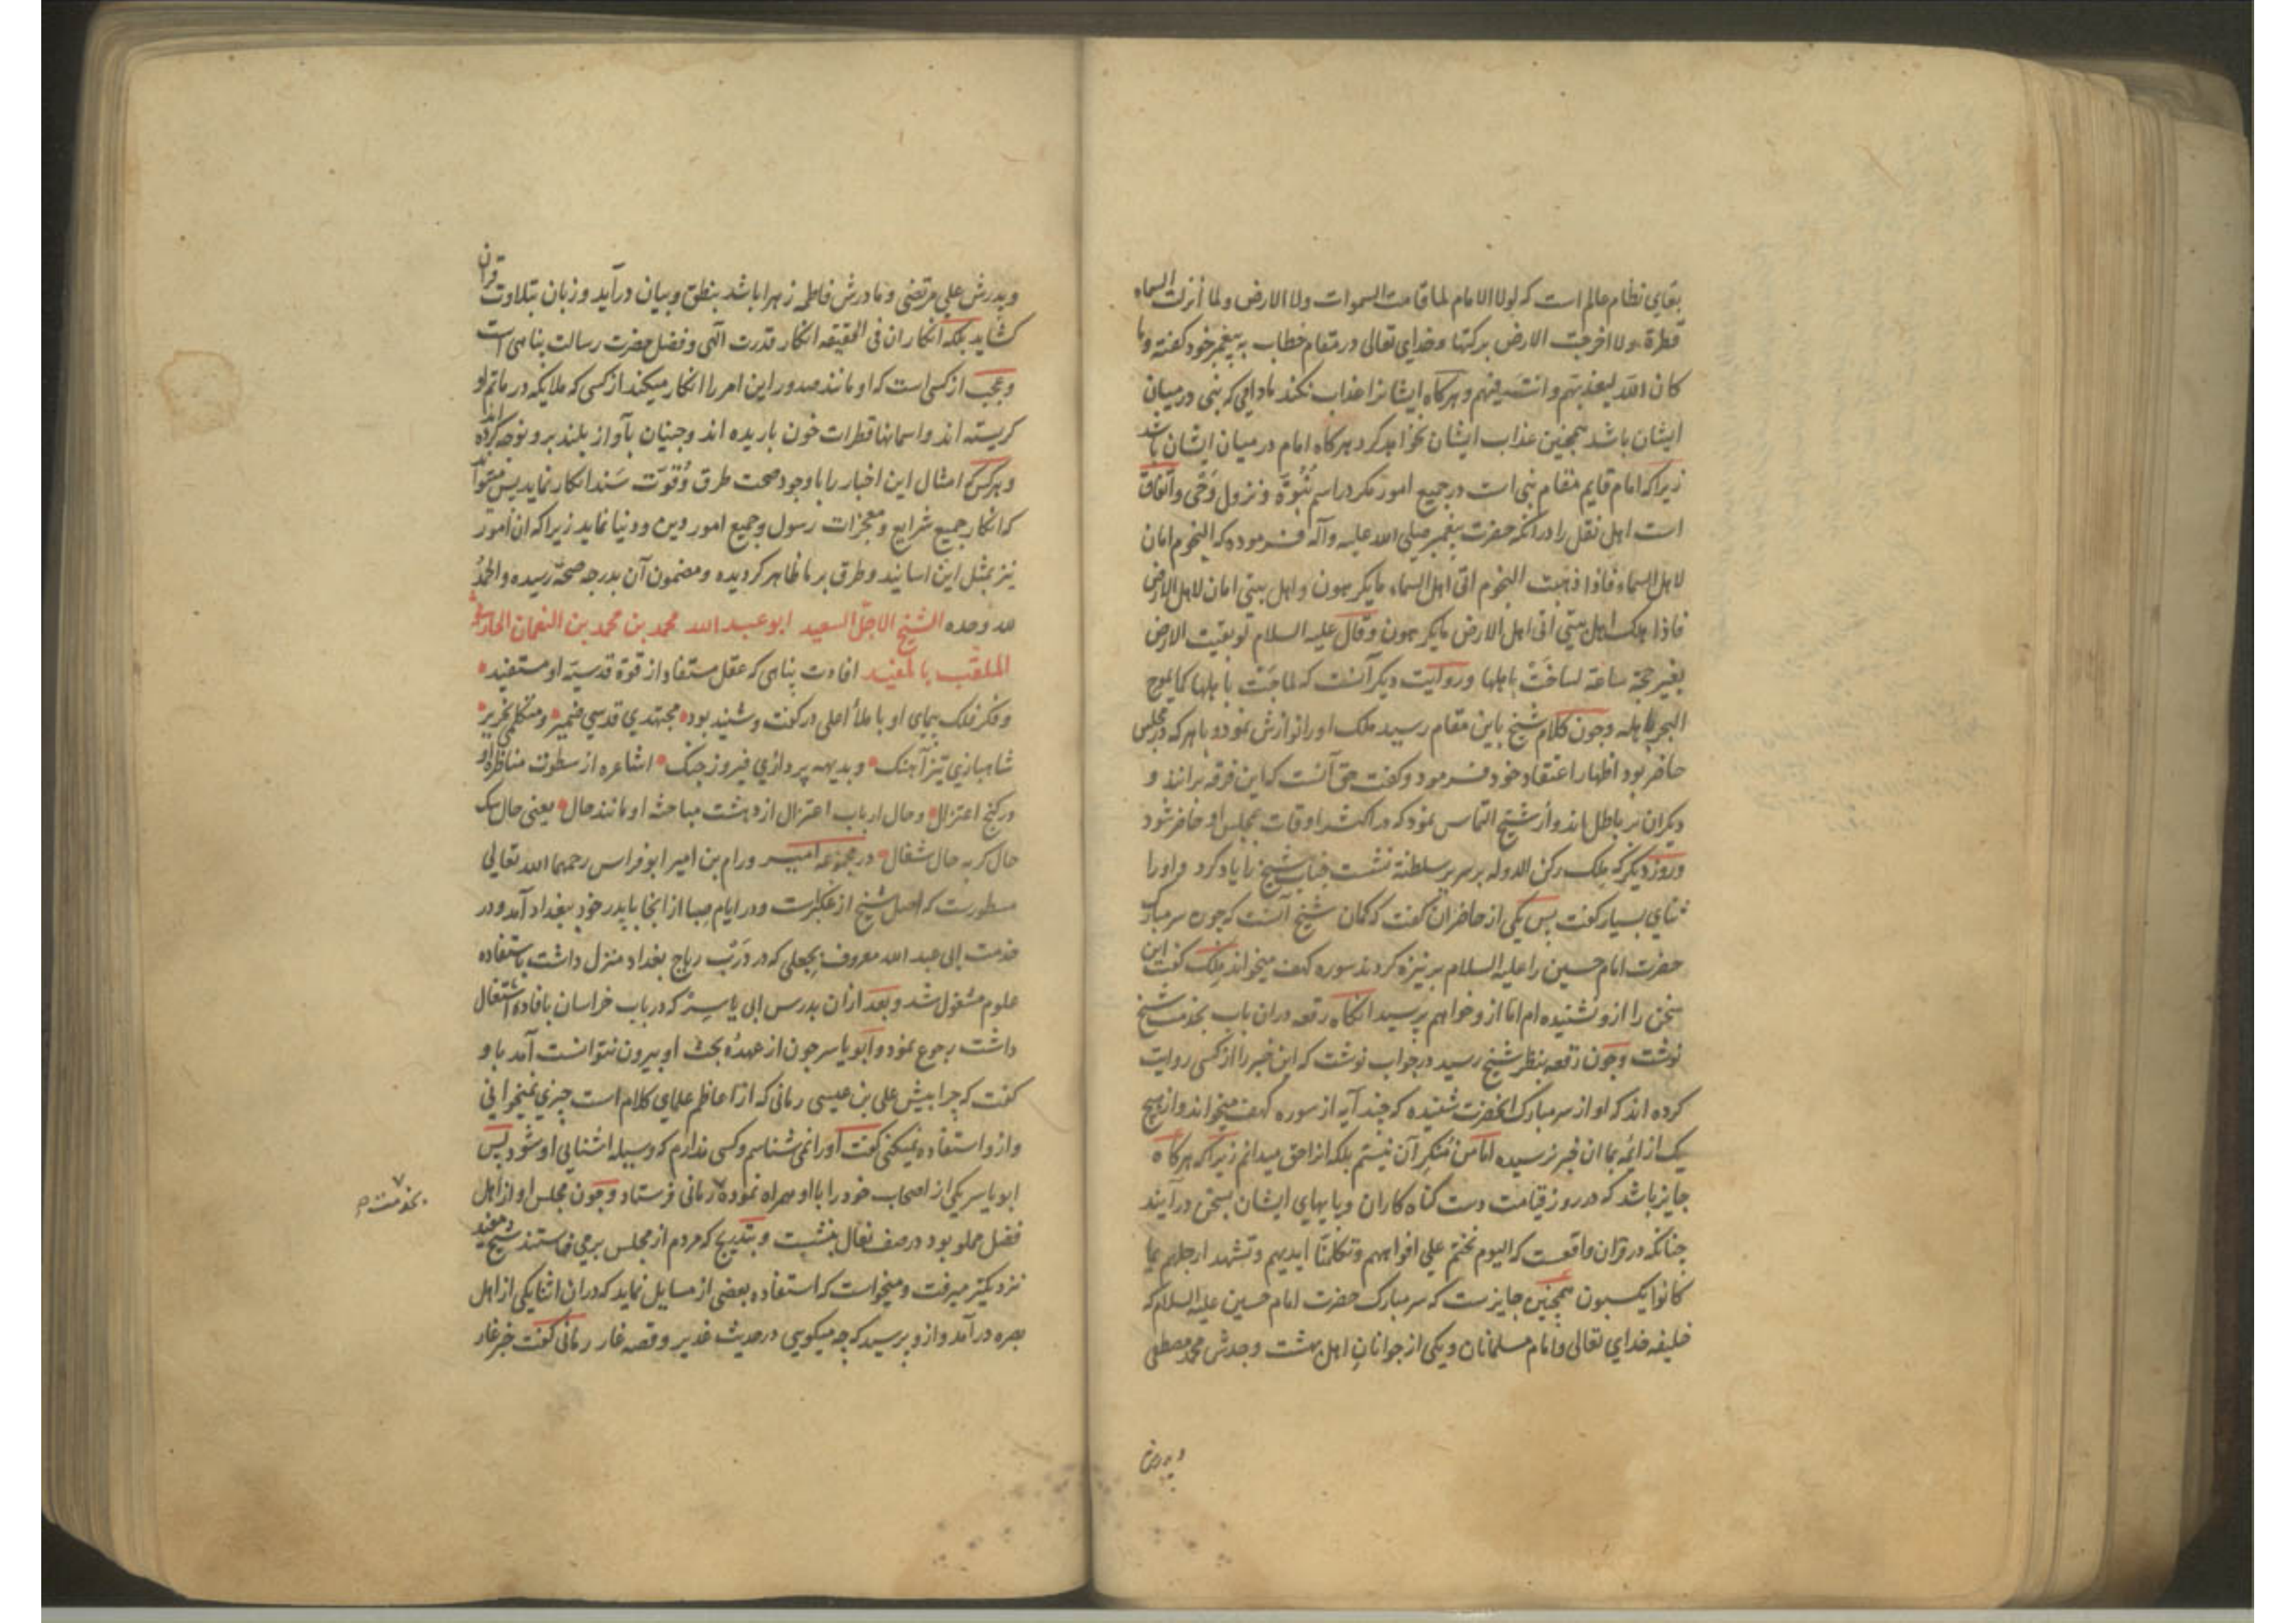 بقای نظام عالم است که لولا الامام لما قامت السموات ولا الارض ولما انزلت السماء
قطرة ولا اخرجت الارض برکتها وخدای تعالی در مقام خطاب به پیغمبر خود کفته وما
کان الله لیعذبهم وانت فیهم وهرکاه ایشانرا عذاب نکند مادامی که نبی در میان
ایشان باشد همچنین عذاب ایشان نخواهد کرد هرکاه امام در میان ایشان باشد
زیرا که امام قایم مقام نبی است در جمیع امور مکر در اسم نبوة ونزول وحی واتفاق
است اهل نقل را در انکه حضرت پیغمبر صلی الله علیه وآله فرموده که النجوم امان
لاهل السماء فاذا ذهبت النجوم اتی اهل السماء ما یکرهون واهل بیتی امان لاهل الارض
فاذا هلک اهل بیتی اتی اهل الارض ما یکرهون وقال علیه السلام لو بقیت الارض
بغیر حجة ساعة لساخت باهلها وروایت دیکر آنست که لماجت باهلها کما یموج
البحر باهله وچون کلام شیخ باین مقام رسید ملک او را نوازش نمود وباهر که در مجلس
حاضر بود اظهار اعتقاد خود فرمود وکفت حق آنست که این فرقه برانند و
دیکران بر باطل اند واز شیخ التماس نمود که در اکثر اوقات بمجلس او حاضر شود
وروز دیکر که ملک رکن الدوله بر سریر سلطنة نشست جناب شیخ را یاد کرد واو را
ثنای بسیار کفت پس یکی از حاضران کفت که کمان شیخ آنست که چون سر مبارک
حضرت امام حسین را علیه السلام بر نیزه کردند سوره کهف میخواند ملک کفت این
سخن را ازو نشنیده ام اما ازو خواهم پرسید انکاه رقعه در ان باب بخدمت شیخ
نوشت وچون رقعه بنظر شیخ رسید در جواب نوشت که این خبر را از کسی روایت
کرده اند که او از سر مبارک انحضرت شنیده که چند آیه از سوره کهف میخواند واز هیچ
یک از ائمه بما ان خبر نرسیده اما من منکر آن نیستم بلکه انرا حق میدانم زیرا که هرکاه
جایز باشد که در روز قیامت دست کناه کاران وپایهای ایشان بسخن درآیند
چنانکه در قران واقعست که الیوم نختم علی افواههم وتکلمنا ایدیهم وتشهد ارجلهم بما
کانوا یکسبون همچنین جایزست که سر مبارک حضرت امام حسین علیه السلام که
خلیفه خدای تعالی وامام مسلمانان ویکی از جوانان اهل بهشت وجدش محمد مصطفی
وپدرش
وپدرش علی مرتضی ومادرش فاطمه زهرا باشد بنطق وبیان درآید وزبان بتلاوت قران
کشاید بلکه انکار ان فی الحقیقه انکار قدرت الهی وفضل حضرت رسالت پناهی است
وعجب از کسی است که او مانند صدور این امر را انکار میکند از کسی که ملایکه در ماتم او
کریسته اند واسمانها قطرات خون باریده اند وجنیان بآواز بلند برو نوحه کرده اند
وهرکس که امثال این اخبار را با وجود صحت طرق وقوت سند انکار نماید پس میتواند
که انکار جمیع شرایع ومعجزات رسول وجمیع امور دین ودنیا نماید زیرا که ان امور
نیز بمثل این اسانید وطرق بر ما ظاهر کردیده ومضمون آن بدرجه صحة رسیده والحمد
لله وحده الشیخ الاجل السعید ابو عبد الله محمد بن محمد بن النعمان الحارثی
الملقب بالمفید افادت پناهی که عقل مستفاد از قوة قدسیة او مستفید
وفکر فلک پیمای او با ملأ اعلی در کفت وشنید بود مجتهدی قدسی ضمیر ومتکلمی نحریر
شاهبازی تیز آهنک وبدیهه پردازی فیروز جنک اشاعره از سطوت مناظره او
در کنج اعتزال وحال ارباب اعتزال از دهشت مباحثه او مانند حال یعنی حال سک
حال کربه حال شغال در مجموعه امیر ورام بن امیر ابو فراس رحمهما الله تعالی
مسطورست که اصل شیخ از عکبرست ودر ایام صبا از انجا با پدر خود ببغداد آمد ودر
خدمت ابی عبد الله معروف بجعلی که در درب رباح بغداد منزل داشت باستفاده
علوم مشغول شد وبعد از ان بدرس ابی یاسر که در باب خراسان بافاده اشتغال
داشت رجوع نمود وابو یاسر چون از عهده بحث او بیرون نتوانست آمد باو
کفت که چرا پیش علی بن عیسی رمانی که از اعاظم علمای کلام است چیزی نمیخوانی
وازو استفاده نمیکنی کفت او را نمی شناسم وکسی ندارم که وسیله اشنایی او شود پس
ابو یاسر یکی از اصحاب خود را با او همراه نموده رمانی فرستاد وچون مجلس او از اهل
بخدمت
فضل مملو بود در صف نعال بنشست وبتدریج که مردم از مجلس برمی خاستند شیخ مفید
نزدیکتر میرفت ومیخواست که استفاده بعضی از مسایل نماید که در ان اثنا یکی از اهل
بصره درآمد وازو پرسید که چه میکویی در حدیث غدیر وقصه غار رمانی کفت خبر غار